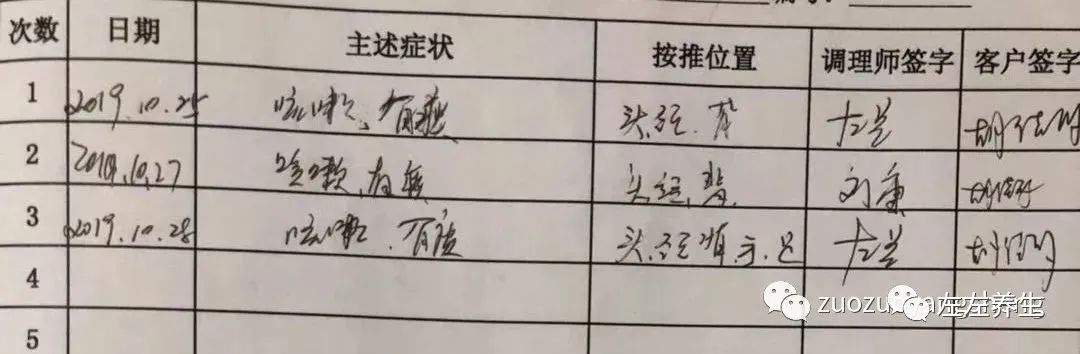 次数 日期 主述症状 按推位置 调理师签字 客户签字
1 2019.10.25 咳嗽、有痰 头、颈、背
2 2019.10.27 咳嗽、有痰 头、颈、背 刘康
3 2019.10.28 咳嗽、有痰 头、颈
4
5
左左养生